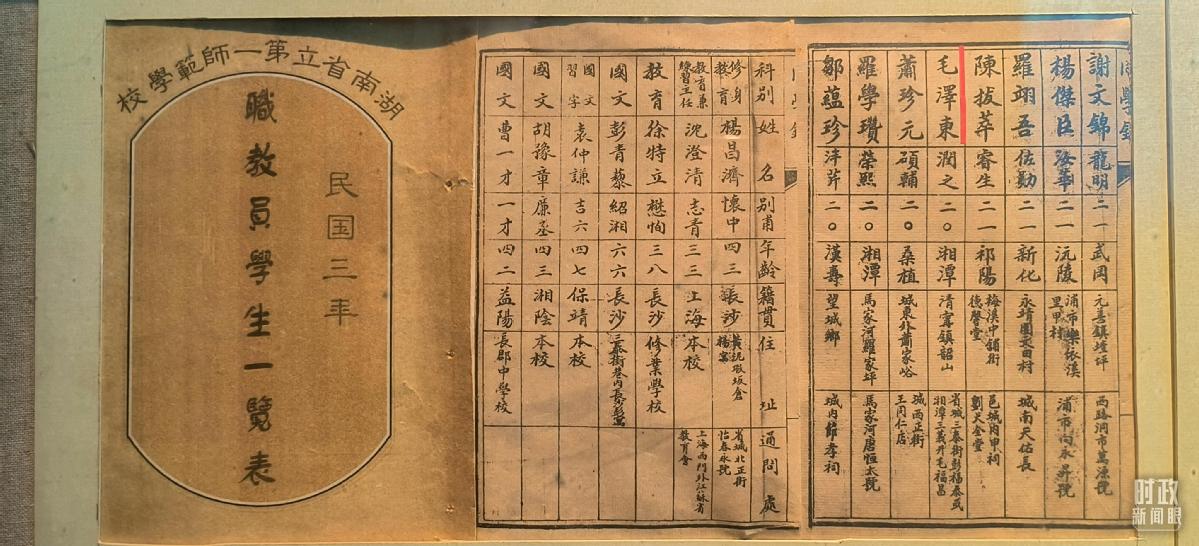 湖南省立第一師範學校
民国三年
職教員學生一覽表
科别 姓名 别甫 年齡 籍貫 住址 通問處
修身教育 楊昌濟 懷中 四三 長沙 省城北正街怡春永號
教育兼練習主任 沈澄清 志青 三三 上海 本校 上海西門外江蘇省教育會
教育 徐特立 懋恂 三八 長沙 修業學校
國文 彭青藜 紹湘 六六 長沙
國文習字 袁仲謙 吉六 四七 保靖 本校
國文 胡豫章 廉丞 四三 湘陰 本校
國文 曹一才 一才 四二 益陽 長郡中學校
謝文錦 龍明 二一 武岡 元善鎮 西路洞市萬源號
楊傑臣 汝華 二一 沅陵 浦市 浦市向永昇號
羅翊吾 佐勛 二一 新化 永靖團 城南天佑長
陳拔萃 睿生 二一 祁陽 梅溪中鋪街德馨堂 邑城内申祠
毛澤東 潤之 二〇 湘潭 清寗鎮韶山 省城三泰街彭福泰或湘潭三義井毛福昌
蕭珍元 碩輔 二〇 桑植 城東外蕭家峪 城西正街王同仁店
羅學瓚 榮熙 二〇 湘潭 馬家河羅家坪 馬家河唐恒太號
鄒蘊珍 泮芹 二〇 漢壽 望城鄉 城内節孝祠
时政
新闻眼